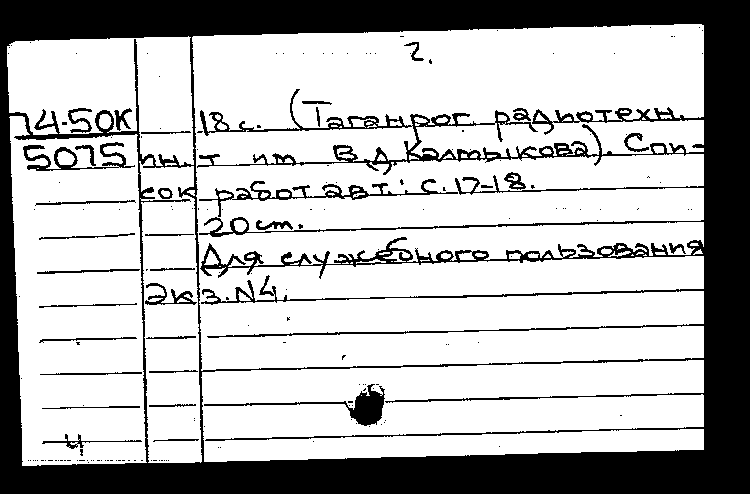 2.
74-50К 18 с. (Таганрог. радиотехн.
5075 ин. т им. В.Д.Калмыкова). Спи-
сок работ авт.: с. 17-18.
20 см.
Для служебного пользования
Экз. N4.
4